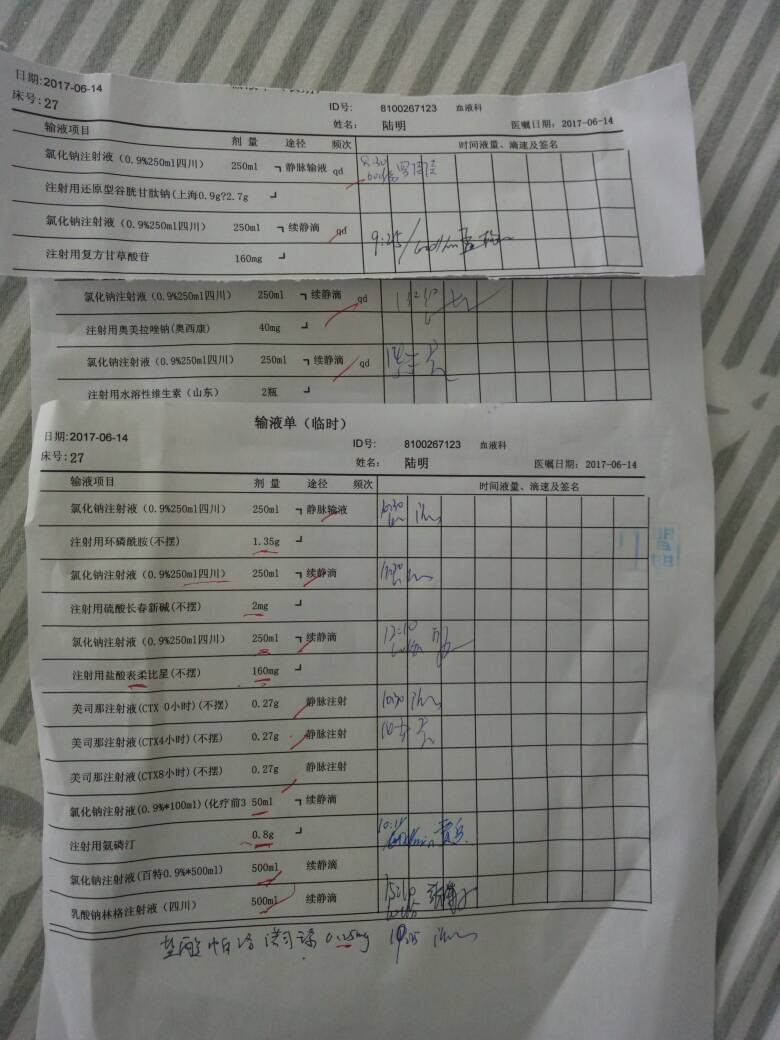 日期:2017-06-14
床号:27
ID号: 8100267123 血液科
姓名: 陆明 医嘱日期: 2017-06-14
输液项目 剂 量 途径 频次 时间液量、滴速及签名
氯化钠注射液（0.9%250ml四川） 250ml ┐静脉输液 qd 8:30
注射用还原型谷胱甘肽钠(上海0.9g?2.7g ┘
氯化钠注射液（0.9%250ml四川） 250ml ┐续静滴 qd 9:25
注射用复方甘草酸苷 160mg ┘
氯化钠注射液（0.9%250ml四川） 250ml ┐续静滴 qd
注射用奥美拉唑钠(奥西康) 40mg ┘
氯化钠注射液（0.9%250ml四川） 250ml ┐续静滴 qd
注射用水溶性维生素（山东） 2瓶 ┘
输液单（临时）
日期:2017-06-14
床号:27
ID号: 8100267123 血液科
姓名: 陆明 医嘱日期: 2017-06-14
输液项目 剂 量 途径 频次 时间液量、滴速及签名
氯化钠注射液（0.9%250ml四川） 250ml ┐静脉输液 10:30
注射用环磷酰胺(不摆) 1.35g ┘
氯化钠注射液（0.9%250ml四川） 250ml ┐续静滴
注射用硫酸长春新碱(不摆) 2mg ┘
氯化钠注射液（0.9%250ml四川） 250ml ┐续静滴 12:10
注射用盐酸表柔比星(不摆) 160mg ┘
美司那注射液(CTX 0小时)(不摆) 0.27g 静脉注射 10:30
美司那注射液(CTX4小时)(不摆) 0.27g 静脉注射
美司那注射液(CTX8小时)(不摆) 0.27g 静脉注射
氯化钠注射液(0.9%*100ml)(化疗前3 50ml ┐续静滴
注射用氨磷汀 0.8g ┘
氯化钠注射液(百特0.9%*500ml) 500ml 续静滴
乳酸钠林格注射液（四川） 500ml 续静滴
盐酸帕洛诺司琼 0.25mg